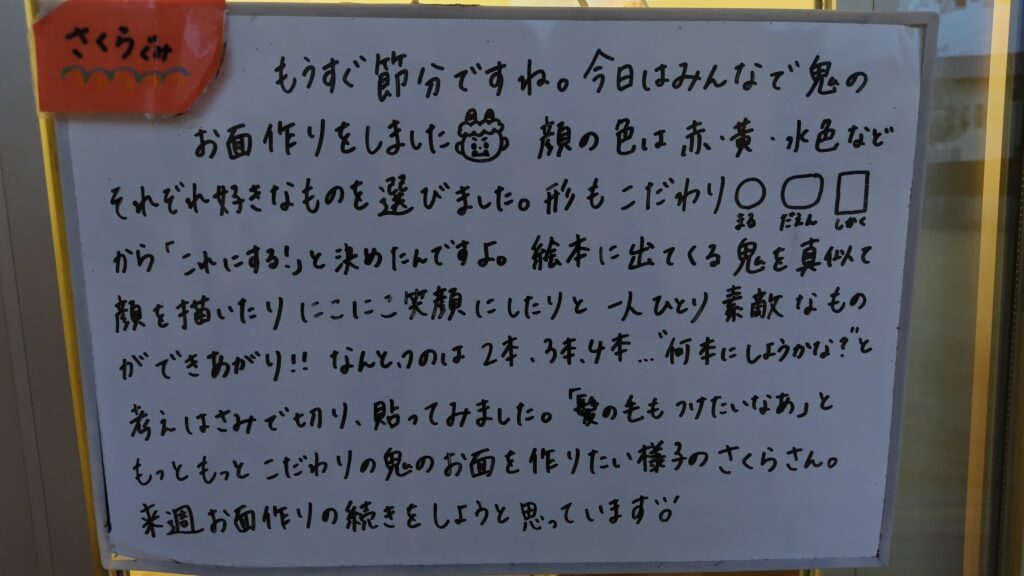 さくらぐみ
もうすぐ節分ですね。今日はみんなで鬼の
お面作りをしました 顔の色は赤・黄・水色など
それぞれ好きなものを選びました。形もこだわり
まる だえん しかく
から「これにする!」と決めたんですよ。絵本に出てくる鬼を真似て
顔を描いたりにこにこ笑顔にしたりと一人ひとり素敵なもの
ができあがり!! なんと、つのは2本、3本、4本…"何本にしようかな?"と
考えはさみで切り、貼ってみました。「髪の毛もつけたいなあ」と
もっともっとこだわりの鬼のお面を作りたい様子のさくらさん。
来週お面作りの続きをしようと思っています。